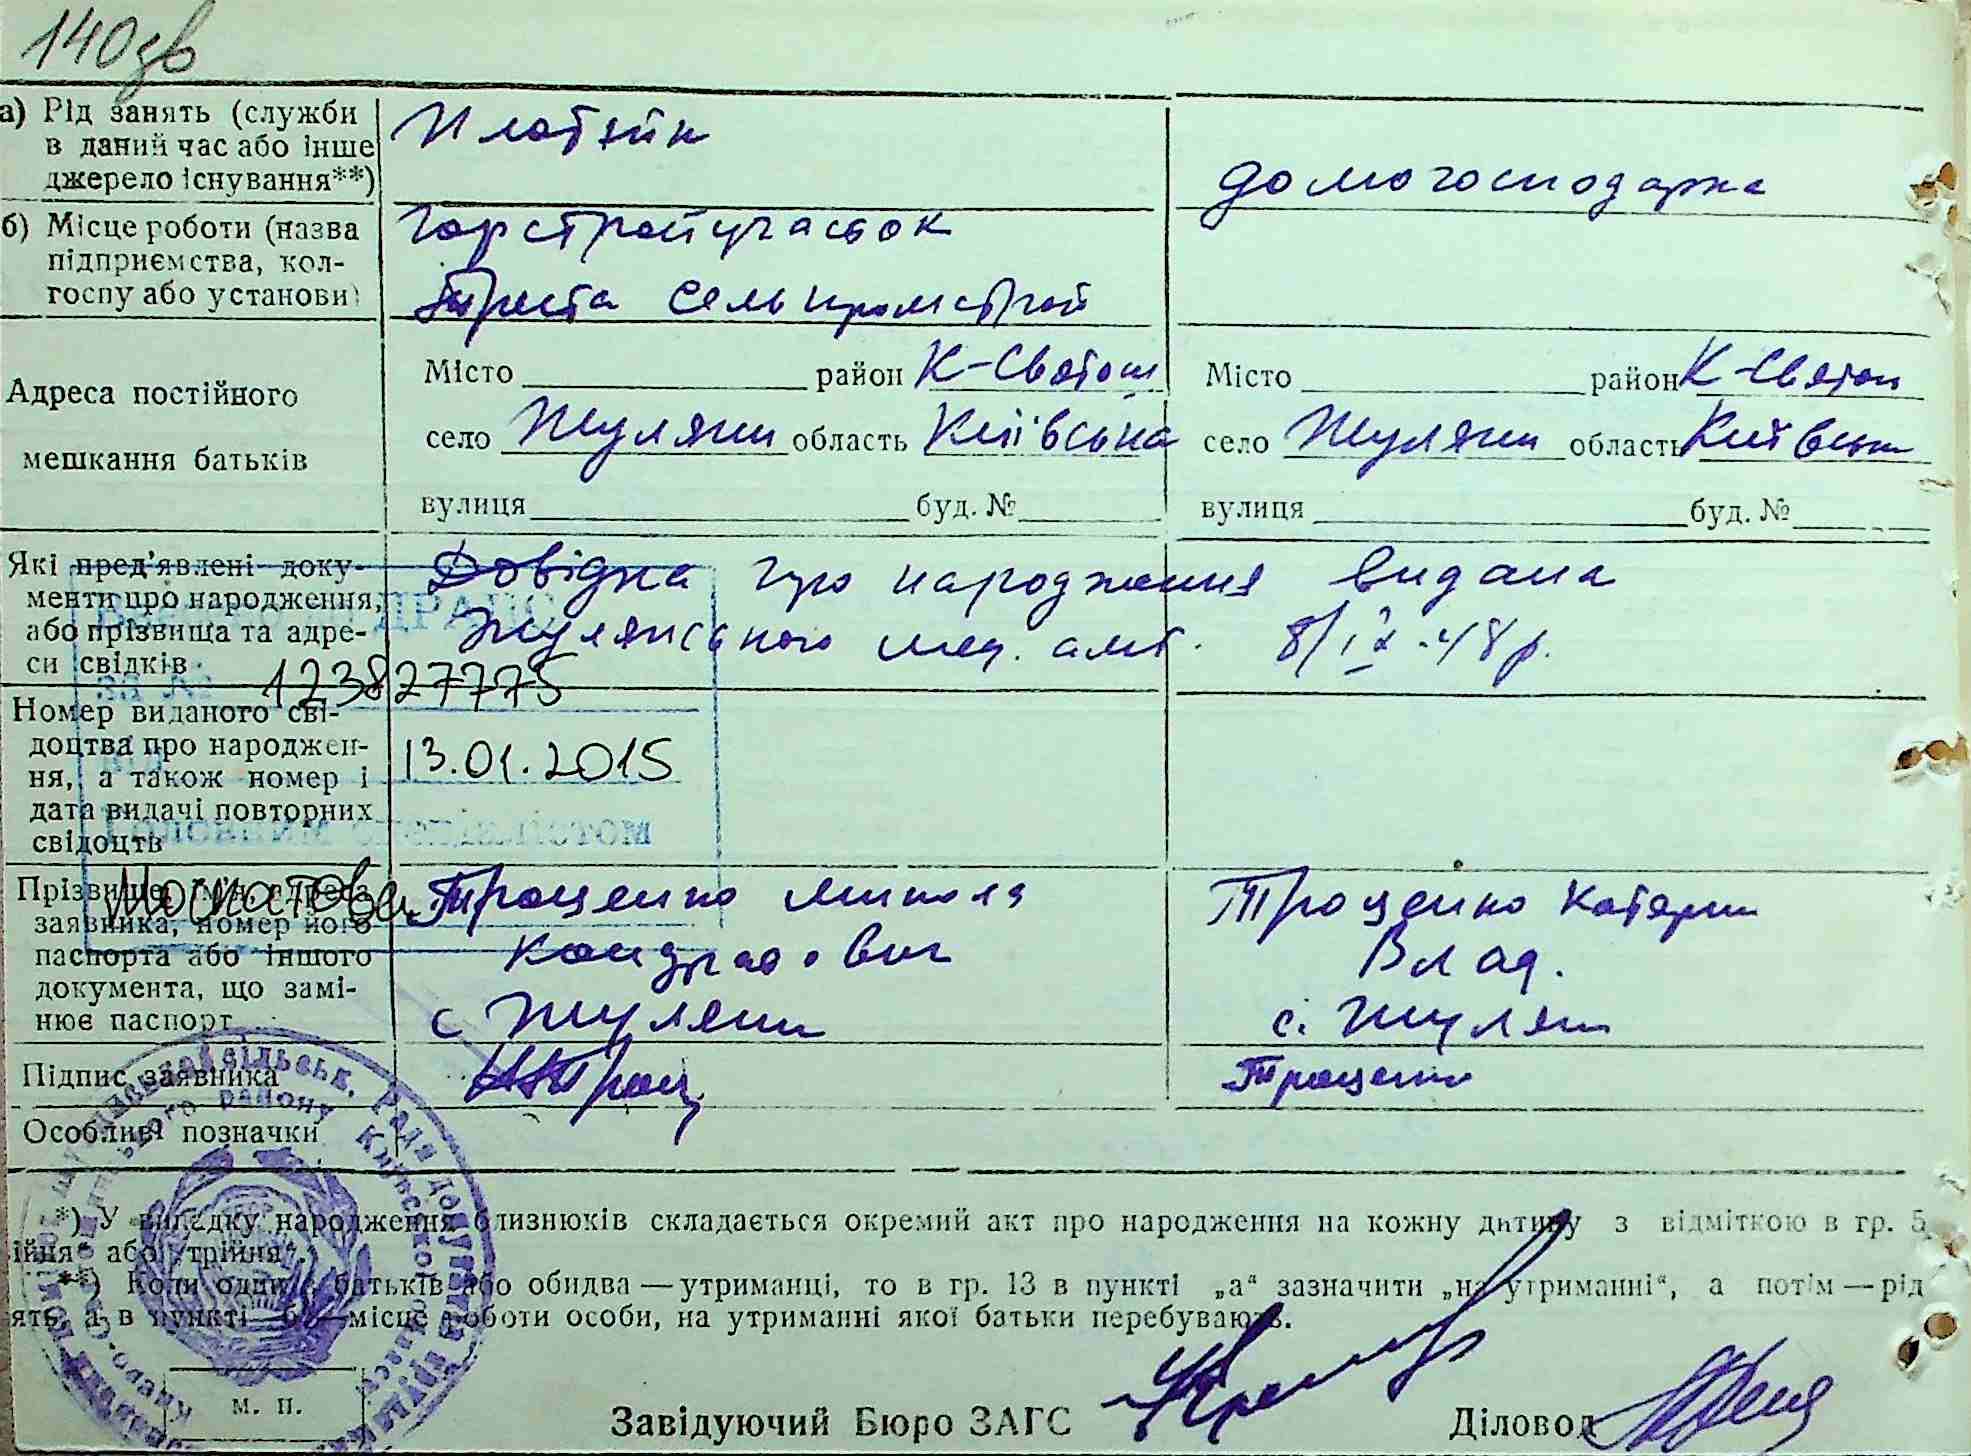 140зв
а) Рід занять (служби в даний час або інше джерело існування**)
Плотнік
домогосподарка
б) Місце роботи (назва підприємства, колгоспу або установи)
Горстройучасток
Треста Сельпромстрой
Адреса постійного мешкання батьків
Місто район К-Святош
село Жуляни область Київська
вулиця буд. №
Місто район К-Святош
село Жуляни область Київськ
вулиця буд. №
Які пред'явлені документи про народження, або прізвища та адреси свідків
Довідка про народження видана
Жулянського мед. амб. 8/IX-48р.
123827775
Номер виданого свідоцтва про народження, а також номер і дата видачі повторних свідоцтв
13.01.2015
Прізвище, ім'я, адреса заявника, номер його паспорта або іншого документа, що замінює паспорт
Троценко Микола
Кондратович
с Жуляни
Троценко Катерин
Влад.
с. Жулян
Підпис заявника
Троц
Троценко
Особливі позначки
*) У випадку народження близнюків складається окремий акт про народження на кожну дитину з відміткою в гр. 5
ійня“ або „трійня“.
**) Коли один з батьків або обидва — утриманці, то в гр. 13 в пункті „а“ зазначити „на утриманні“, а потім — рід
ять, а в пункті „б“ — місце роботи особи, на утриманні якої батьки перебувають.
м. п.
Завідуючий Бюро ЗАГС
Діловод